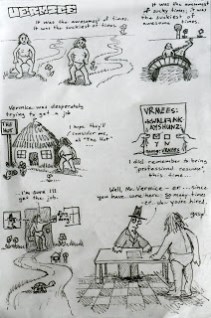 VERMEES
It was the awesomest of times.
It was the suckiest of times.
It was the awesomest
of sucky times, it was
the suckiest of
awesome times.
Vermee was desperately
trying to get a job
THE
HUT
I hope they'll
consider me,
at "The Hut"
I did remember to bring
"professional resume"
this time...
...I'm sure I'll
get the job.
Well, Mr. Vermee - er... since
you have come here so many times
- er. ok - you're hired.
gasp!